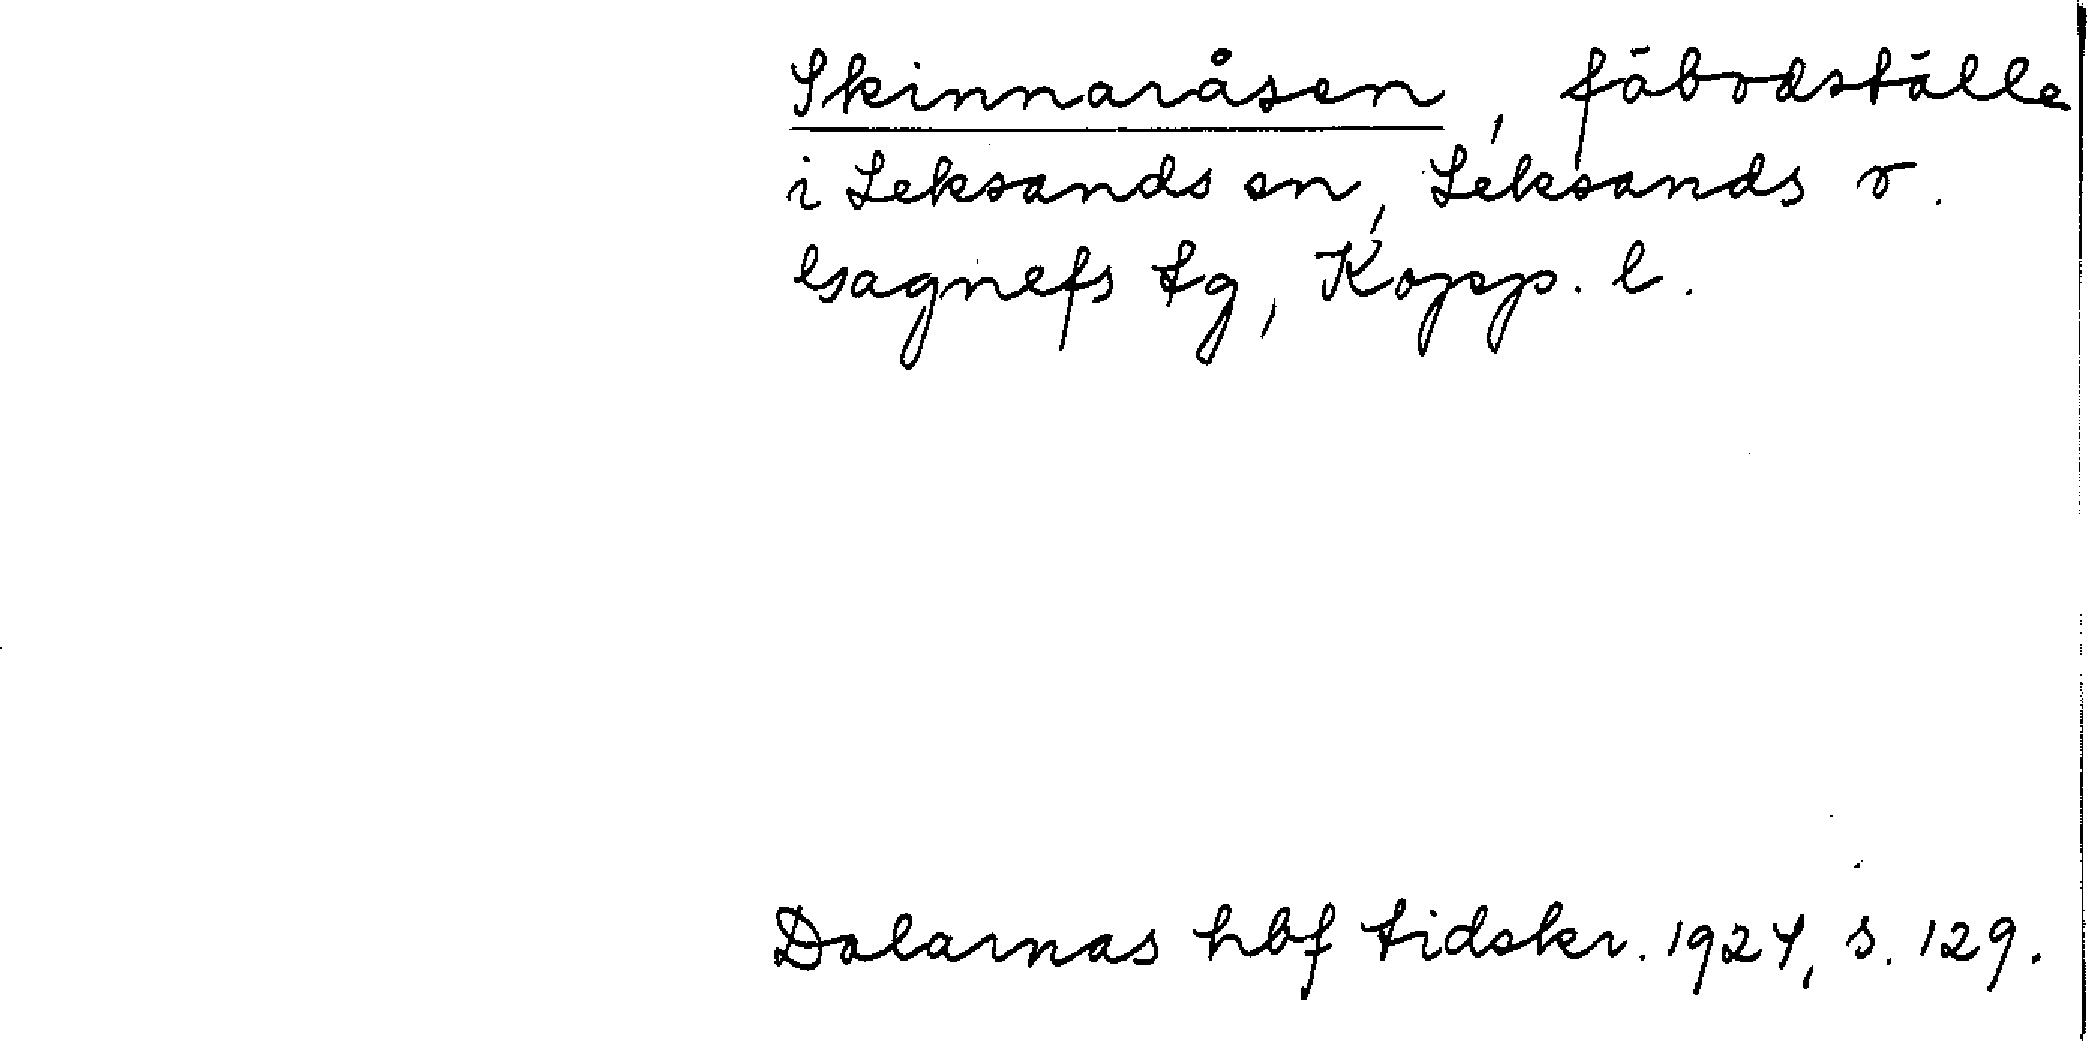 Skinnaråsen, fäbodställe
i Leksands sn, Leksands o.
Gagnefs tg, Kopp. l.
Dalarnas hbf tidskr. 1924, s. 129.